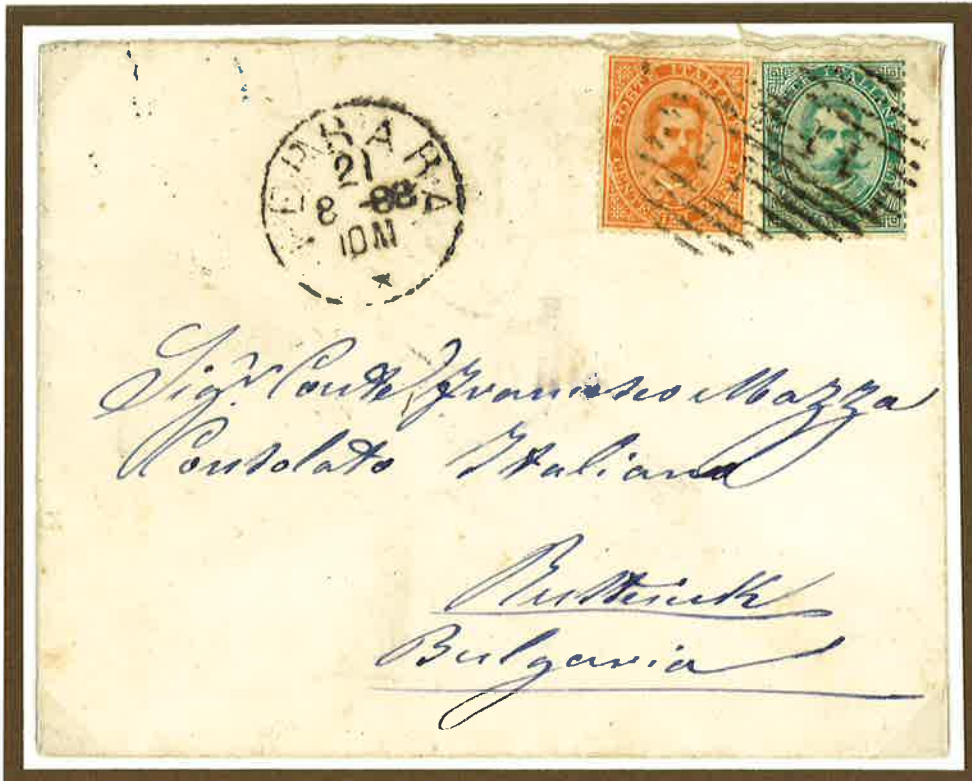 FERRARA
21
8 -88
10M
POSTE ITALIANE
Sigr. Conte Francesco Mazza
Consolato Italiano
Rustciuk
Bulgaria